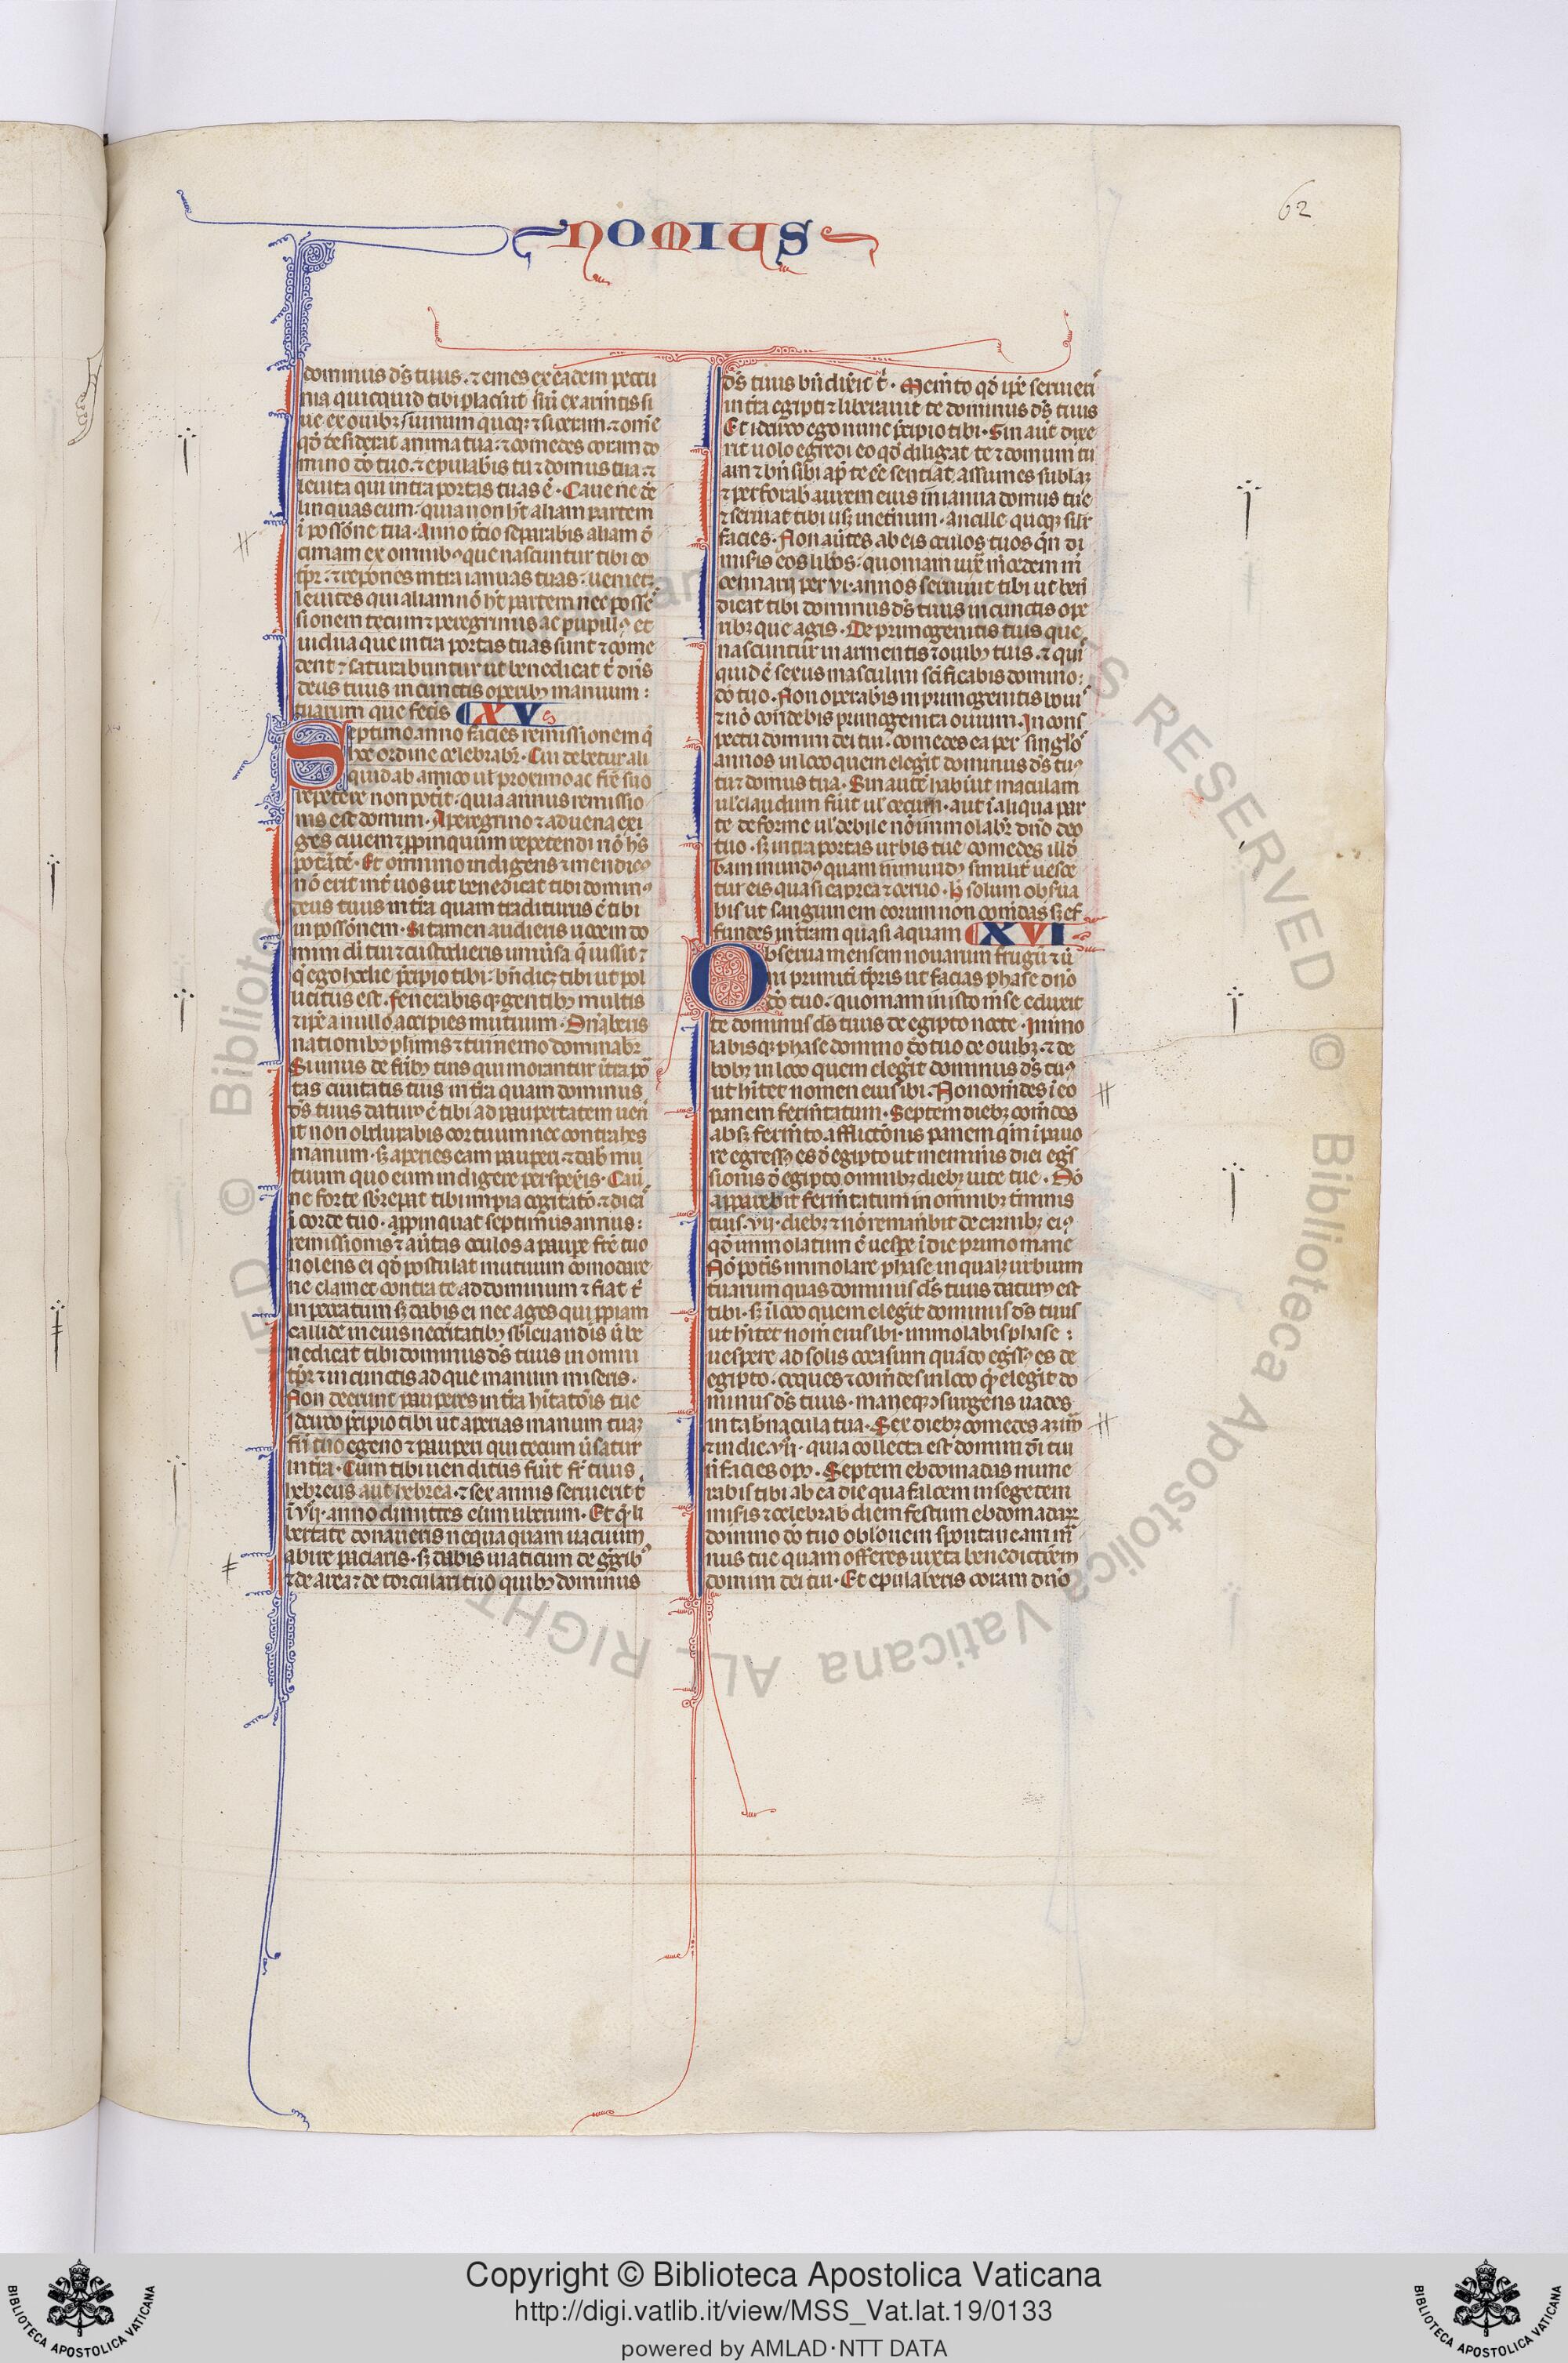 62
NOMIUS
dominus ds̄ tuus. ⁊ emes ex eadem pecu
nia quicquid tibi placuit siue ex armentis si
ue ex ouibꝫ uinum quoqꝫ ⁊ siceram ⁊ om̄e
qd̄ desiderat anima tua: ⁊ comedes coram do
mino do̅ tuo. ⁊ epulabis tu ⁊ domus tua: ⁊
leuita qui intra portas tuas ē. Caue ne de
linquas eum: quia non ht̄ aliam partem
ī poss̄one tua. Anno tc̄io separabis aliam d̄
cimam ex omnibꝰ que nascuntur tibi eo
tp̄r: ⁊ repones intra ianuas tuas: ueniet
leuites qui aliam nō ht̄ partem nec posse
sionem tecum ⁊ peregrinus ac pupillꝰ et
uidua que intra portas tuas sunt ⁊ come
dent ⁊ saturabuntur ut benedicat t̄ dn̄s
deus tuus in cunctis operibꝫ manuum:
tuarum que fecis XV
Septimo anno facies remissionem q̄
hoc ordine celebrabr̄. Cui debetur ali
quid ab amico ul̄ proximo ac fr̄e suo
repetere non potit: quia annus remissio
nis est domini. A peregrino ⁊ aduena exi
ges ciuem ⁊ ꝓpinquum repetendi nō hēs
potatē. Et omnino indigens ⁊ mendicꝰ
nō erit int̄ uos ut benedicat tibi dominꝰ
deus tuus in tr̄a quam traditurus ē tibi
in poss̄onem. Si tamen audieris uocem do
mini dī tui ⁊ custodieris uniūsa q̄ iussit ⁊
q̄ ego hodie p̄cipio tibi: bn̄dicꝫ tibi ut pol
licitus est. Fenerabis qꝫ gentibꝫ multis
⁊ ip̄e a nullo accipies mutuum. Dn̄aberis
nationibꝫ plimis ⁊ tui nemo dominabr̄
Si unus de fr̄ibꝫ tuis qui morantur īt̄ra por
tas ciuitatis tuis in tr̄a quam dominus
ds̄ tuus daturꝰ ē tibi ad paupertatem uen̄
it non obdurabis cor tuum nec contrahes
manum. sꝫ aperies eam pauperi ⁊ dab̄ mu
tuum quo eum indigere perspexis. Caue
ne forte sb̄repat tibi impia cogitatō ⁊ dicas
ī corde tuo. appinquat septimus annus:
remissionis ⁊ aūtas oculos a paupe fr̄e tuo
nolens ei qd̄ postulat mutuum comodare
ne clamet contra te ad dominum ⁊ fiat t̄
in peccatum sꝫ dabis ei nec ages quippiam
callide in eius necc̄itatibꝫ sb̄leuandis ut be
nedicat tibi dominus ds̄ tuus in omni
tp̄r ⁊ in cunctis ad que manum miseris.
Non deerunt pauperes in tr̄a hītatōis tue
Idcirco p̄cipio tibi ut aperias manum tuaꝫ
fr̄i tuo egeno ⁊ pauperi qui tecum ūsatur
in tr̄a. Cum tibi uenditus fuit fr̄ tuus
hebreus aut hebrea. ⁊ sex annis seruierit t̄
ī vij. anno dimittes eum liberum. Et q̄ li
bertate donaueris nequaquam uacuum
abire paciaris. sꝫ dabis uiaticum de ggibꝰ
⁊ de area ⁊ de torculari tuo quibꝫ dominus
ds̄ tuus bn̄dixit t̄. Mem̄to qd̄ ip̄e seruieris
in tr̄a egipti ⁊ liberauit te dominus ds̄ tuus
Et idcirco ego nunc p̄cipio tibi. Sin aūt dixe
rit uolo egredi eo qd̄ diligat te ⁊ domum tu
am ⁊ bn̄ sibi ap̄ te eē sentiat assumes sublaꝫ
⁊ perforab̄ aurem eius in ianua domus tue
⁊ seruiat tibi usqꝫ in et̄num. Ancille quoqꝫ silr̄
facies. Non aūtes ab eis oculos tuos q̄n di
misis eos libos: quoniam iux̄ m̄cedem m̄
cennarij per vi. annos seruiuit tibi ut ben̄
dicat tibi dominus ds̄ tuus in cunctis ope
ribꝫ que agis. De primogenitis tuis que
nascuntur in armentis ⁊ ouibꝫ tuis. ⁊ quic
quid ē sexus masculini sc̄ificabis domino:
do̅ tuo. Non operabis in primogenitis bouis
⁊ nō condebis primogenita ouium. In cons
pectu domini dei tui. comedes ea per singlōs
annos in loco quem elegit dominus ds̄ tuꝰ
tu ⁊ domus tua. Sin autē habūit maculam
ul̄ claudum fūit ul̄ cecum. aut ī aliqua par
te deforme ul̄ debile nō immolabr̄ dn̄o deo
tuo. sꝫ intra portas urbis tue comedes illd̄
Tam mundꝰ quam inmundꝰ similit̄ uesce
tur eis quasi caprea ⁊ ceruo. H̄ solum obs̄ua
bis ut sanguinem eorum non com̄das sꝫ ef
fundes in t̄ram quasi aquam XVI
Obserua mensem nouarum frugū ⁊ ū
ni primitī tp̄ris ut facias phase dn̄o
do̅ tuo. quoniam in isto m̄se eduxit
te dominus ds̄ tuus de egipto nocte. Inmo
labisqꝫ phase domino do̅ tuo de ouibꝫ ⁊ de
bobꝫ in loco quem elegit dominus ds̄ tuꝰ
ut hītet nomen eius ibi. Non com̄des ī eo
panem ferm̄tatum. Septem diebꝫ com̄des
absqꝫ ferm̄to afflictōnis panem qm̄ ī pauo
re egressꝰ es d̄ egipto ut memīnis diei egs̄
sionis d̄ egipto omnibꝫ diebꝫ uite tue. Nō
apparebit ferm̄tatum in omnibꝫ t̄minis
tuis. vij. diebꝫ ⁊ nō remanbit de carnibꝫ eiꝰ
qd̄ immolatum ē uesp̄e ī die primo mane
Nō potis immolare phase in qualꝫ urbium
tuarum quas dominus ds̄ tuus daturꝰ est
tibi. sꝫ ī loco quem elegit dominus ds̄ tuus
ut hītet nom̄ eius ibi. immolabis phase:
uespere ad solis occasum quādo egssꝰ es de
egipto. coques ⁊ com̄des in loco q̄ elegit do
minus ds̄ tuus. maneqꝫ surgens uades
in tabn̄acula tua. Sex diebꝫ comedes azim̄
⁊ in die. vij. quia collecta est domini dī tui
n̄ facies opꝰ. Septem ebdomadas nume
rabis tibi ab ea die qua falcem in segetem
misis ⁊ celebrab̄ diem festum ebdomadaꝝ
domino do̅ tuo oblōnem spontaneam ma
nus tue quam offeres iuxta benedictōem
domini dei tui. Et epulaberis coram dn̄o
© Biblioteca Apostolica Vaticana ALL RIGHTS RESERVED
Copyright © Biblioteca Apostolica Vaticana
http://digi.vatlib.it/view/MSS_Vat.lat.19/0133
powered by AMLAD·NTT DATA
BIBLIOTECA APOSTOLICA VATICANA
BIBLIOTECA APOSTOLICA VATICANA